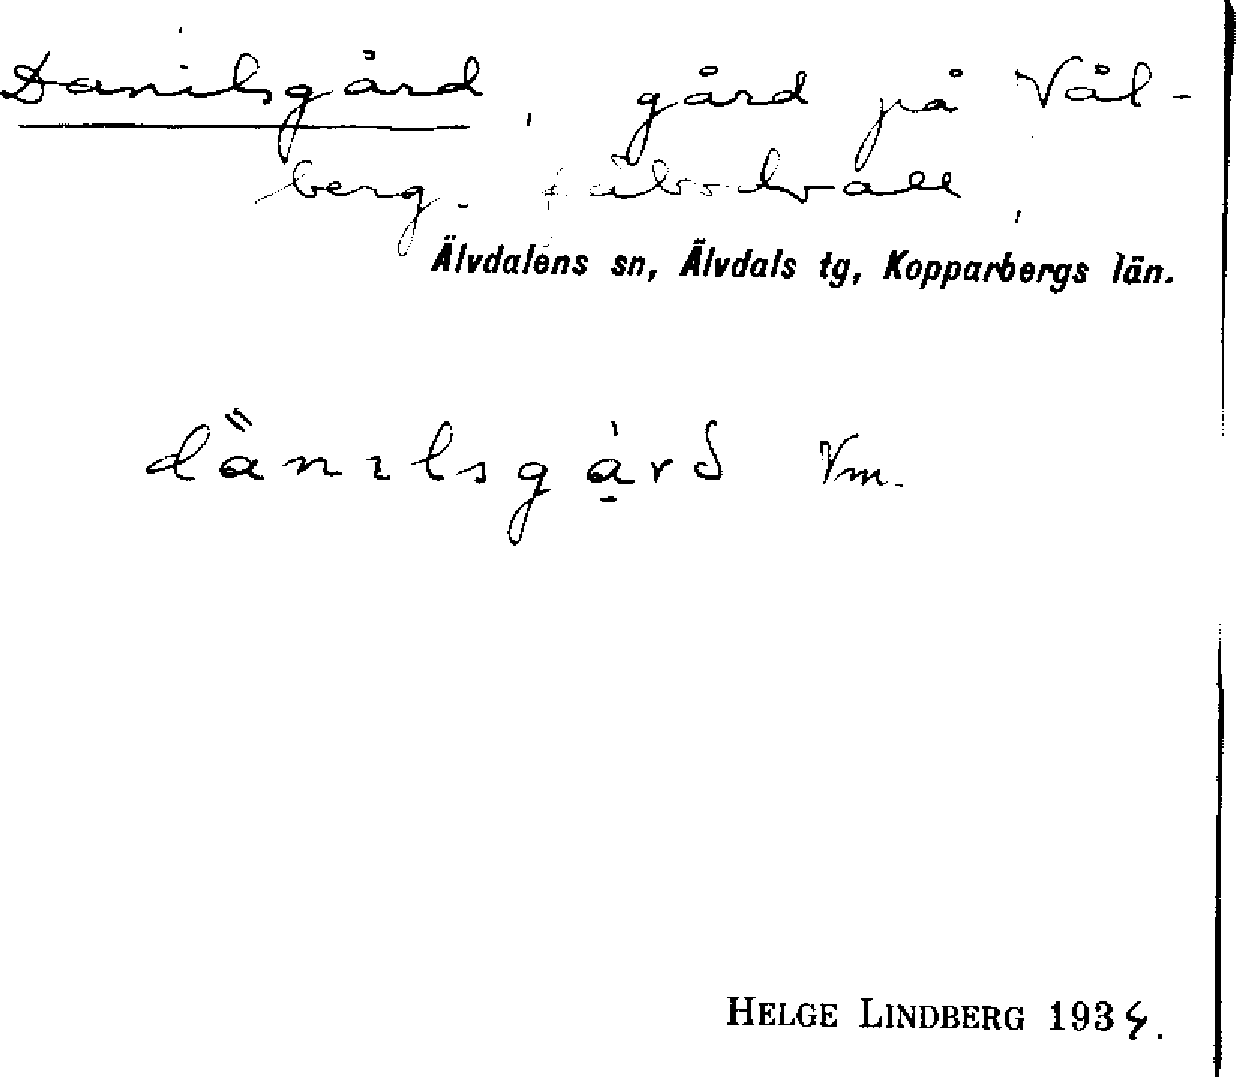 Danilsgård, gård på Vål-
berg. fäbodvall,
Älvdalens sn, Älvdals tg, Kopparbergs län.
dä̀nɪlsgà̠rd Vm.
HELGE LINDBERG 1934.